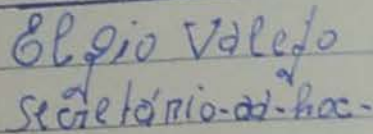 Elgio Valejo
secretário-ad-hoc-